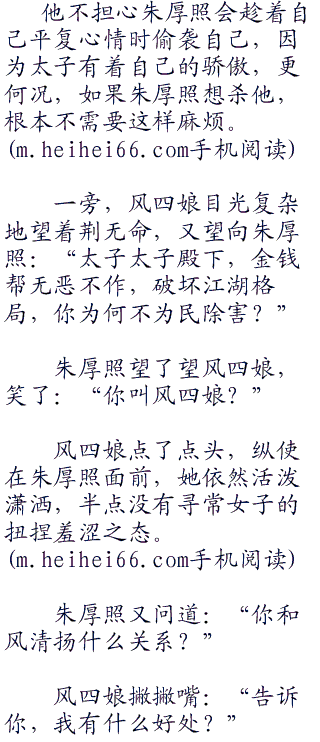 他不担心朱厚照会趁着自
己平复心情时偷袭自己，因
为太子有着自己的骄傲，更
何况，如果朱厚照想杀他，
根本不需要这样麻烦。
(m.heihei66.com手机阅读)
一旁，风四娘目光复杂
地望着荆无命，又望向朱厚
照：“太子太子殿下，金钱
帮无恶不作，破坏江湖格
局，你为何不为民除害？”
朱厚照望了望风四娘，
笑了：“你叫风四娘？”
风四娘点了点头，纵使
在朱厚照面前，她依然活泼
潇洒，半点没有寻常女子的
扭捏羞涩之态。
(m.heihei66.com手机阅读)
朱厚照又问道：“你和
风清扬什么关系？”
风四娘撇撇嘴：“告诉
你，我有什么好处？”